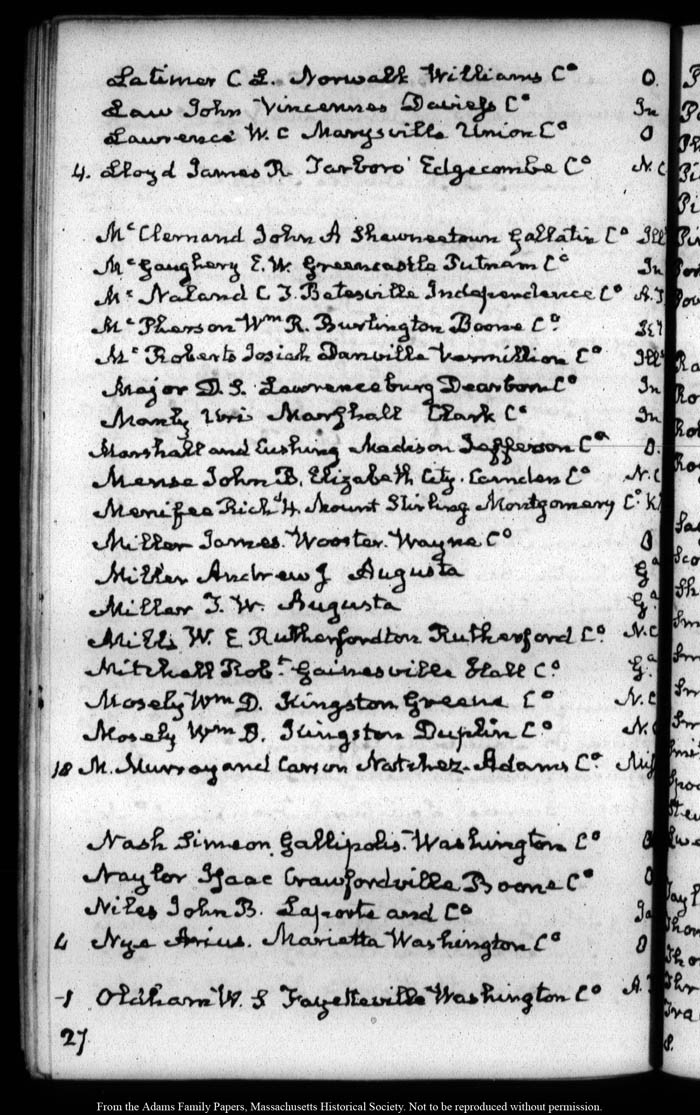 Latimer C L. Norwalk Williams Co O.
Law John Vincennes Daviess Co In
Lawrence W. C Marysville Union Co O
4. Lloyd James R Tarboro' Edgecombe Co N. C
Mc Clernand John A Shawneetown Gallatin Co Ills
Mc Gaughery E. W. Greencastle Putnam Co In
Mc Naland C F. Batesville Independence Co A. T
Mc Pherson Wm R. Burlington Boone Co
Mc Roberts Josiah Danville Vermillion Co Ills
Major D. S. Lawrenceburg Dearborn Co In
Manly Uri Marshall Clark Co In
Marshall and Cushing Madison Jefferson Co O.
Mense John B. Elizabeth City. Camden Co N. C
Menifee Richd H. Mount Stirling Montgomery Co K
Miller James. Wooster. Wayne Co O
Miller Andrew J Augusta Ga
Miller T. W. Augusta Ga
Mills W. E Rutherfordton Rutherford Co. N. C
Mitchell Robt Gainesville Hall Co. Ga
Mosely Wm D. Kingston Greene Co N. C
Mosely Wm B. Kingston Duplin Co. N. C
18 M. Murray and Carson Natchez. Adams Co. Miss
Nash Simeon Gallipolis. Washington Co O
Naylor Isaac Crawfordville Boone Co
Niles John B. Laporte and Co
4 Nye Arius. Marietta Washington Co O
1 Oldham W. S Fayetteville Washington Co A. T
27
From the Adams Family Papers, Massachusetts Historical Society. Not to be reproduced without permission.